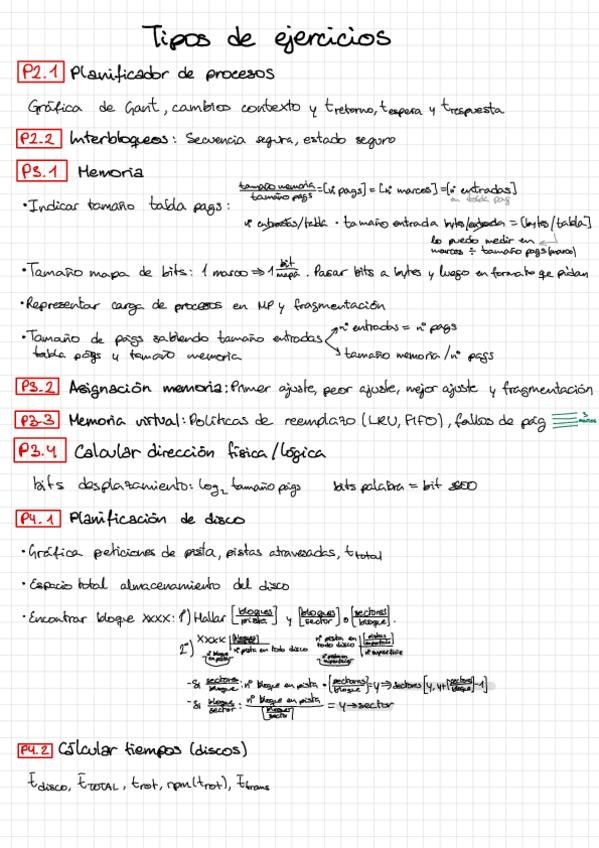 Tipos de ejercicios
P2.1 Planificador de procesos
Gráfica de Gant, cambios contexto y tretorno, tespera y trespuesta
P2.2 Interbloqueos: Secuencia segura, estado seguro
P3.1 Memoria
tamaño memoria / tamaño pags = [nº pags] = [nº marcos] = [nº entradas]
en tabla pag
• Indicar tamaño tabla pags:
nº entradas/tabla · tamaño entrada bytes/entrada = [bytes/tabla]
lo puedo medir en
marcos ÷ tamaño pags (marco)
• Tamaño mapa de bits: 1 marco ⇒ 1 bit/mapa. Pasar bits a bytes y luego en formato qe pidan
• Representar carga de procesos en MP y fragmentación
• Tamaño de págs sabiendo tamaño entradas nº entradas = nº pags
tabla págs y tamaño memoria tamaño memoria / nº pags
P3.2 Asignación memoria: Primer ajuste, peor ajuste, mejor ajuste y fragmentación
P3.3 Memoria virtual: Políticas de reemplazo (LRU, FIFO), fallos de pág 3 marcos
P3.4 Calcular dirección física/lógica
bits desplazamiento: log2 tamaño págs bits palabra = bit
P4.1 Planificación de disco
• Gráfica peticiones de pista, pistas atravesadas, ttotal
• Espacio total almacenamiento del disco
• Encontrar bloque XXXX: 1º) Hallar [bloques/pista] y [bloques/sector] o [sectores/bloque].
2º) XXXX nº pista en todo disco nº pista en todo disco nº superficie
- Si sectores/bloque: nº bloque en pista · [sectores/bloque] = y ⇒ sectores [y, y+[sectores/bloque]-1]
- Si bloques/sector: nº bloque en pista / [bloques/sector] = y → sector
P4.2 Cálcular tiempos (discos)
t̄disco, t̄TOTAL, trot, rpm(trot), t̄trans